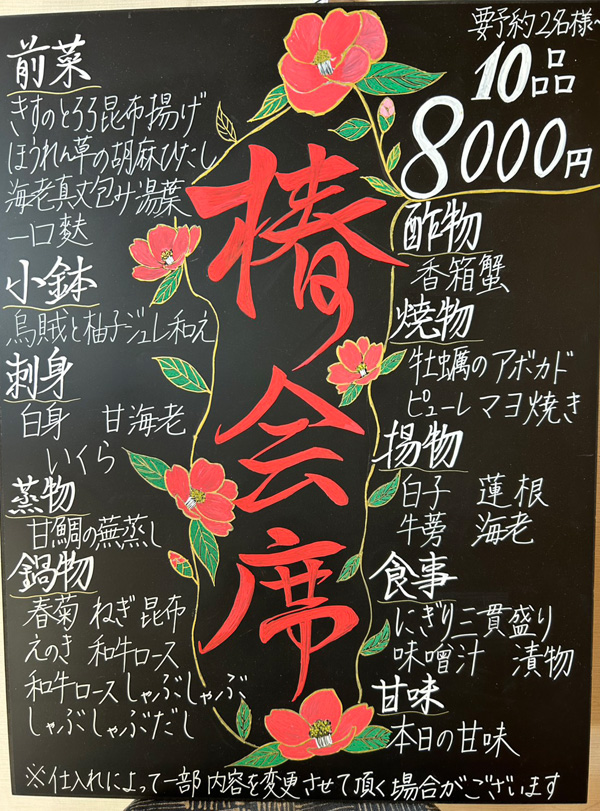 要予約2名様~
10品
8000円
椿会席
前菜
きすのとろろ昆布揚げ
ほうれん草の胡麻ひたし
海老真丈包み湯葉
一口麩
小鉢
烏賊と柚子ジュレ和え
刺身
白身 甘海老
いくら
蒸物
甘鯛の蕪蒸し
鍋物
春菊 ねぎ 昆布
えのき 和牛ロース
和牛ロースしゃぶしゃぶ
しゃぶしゃぶだし
酢物
香箱蟹
焼物
牡蠣のアボカド
ピューレマヨ焼き
揚物
白子 蓮根
牛蒡 海老
食事
にぎり三貫盛り
味噌汁 漬物
甘味
本日の甘味
※仕入れによって一部内容を変更させて頂く場合がございます